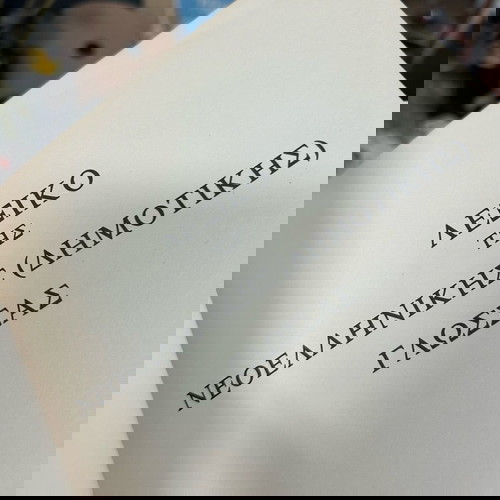 ΛΕΞΙΚΟ
ΤΗΣ
ΝΕΟΕΛΛΗΝΙΚΗΣ (ΔΗΜΟΤΙΚΗΣ)
ΓΛΩΣΣΑΣ